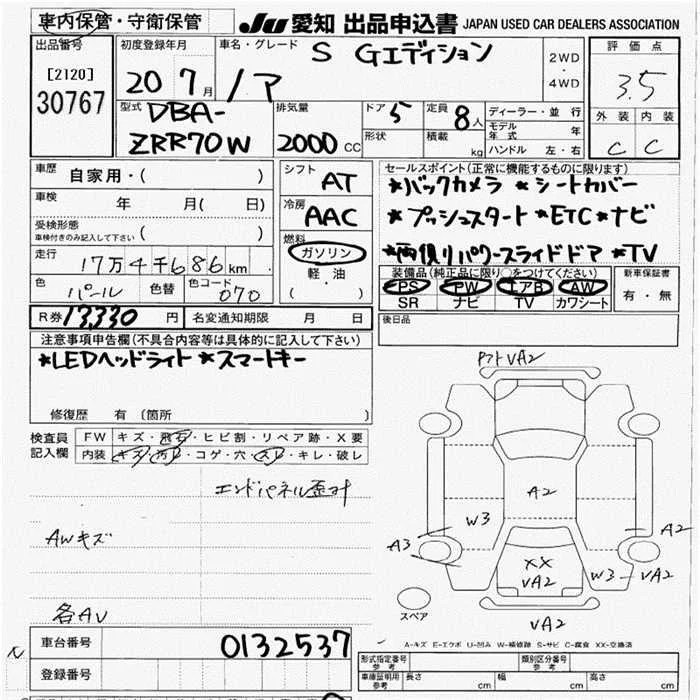 車内保管・守衛保管 JU 愛知 出品申込書 JAPAN USED CAR DEALERS ASSOCIATION
出品番号 初度登録年月 車名・グレード S Gエディション 2WD・4WD 評価点
[2120] 20 7月 ノア 3.5
30767 型式 DBA-ZRR70W 排気量 2000cc ドア 5 形状 定員 8人 積載 kg ディーラー・並行 モデル年式 年 ハンドル 左・右 外装 内装
C C
車歴 自家用・( ) シフト AT セールスポイント(正常に機能するものに限ります)
車検 年 月( 日) 冷房 AAC *バックカメラ *シートカバー
受検形態 車検付きのみ記入して下さい ( ) 燃料 ガソリン *プッシュスタート *ETC *ナビ
走行 17万4千686km 軽油 *両側りパワースライドドア *TV
色 パール 色替 色コード 070 ( ) 装備品(純正品に限り○をつけてください) 新車保証書
PS PW エアB AW 有・無
SR ナビ TV カワシート
R券 13,330円 名変通知期限 月 日 後日品
注意事項申告欄(不具合内容等は具体的に記入して下さい)
*LEDヘッドライト *スマートキー
修復歴 有(箇所 )
検査員記入欄 FW キズ・飛石・ヒビ割・リペア跡・X要
内装 キズ・汚レ・コゲ・穴・スレ・キレ・破レ
エンドパネル歪み
AWキズ
各AU
VA2
A2
W3 A2
A3
XX
VA2 W3 VA2
スペア VA2
A-キズ E-エクボ U-凹み W-補修跡 S-サビ C-腐食 XX-交換済
車台番号 0132537 形式指定番号 参考 類別区分番号 参考
登録番号 車庫証明用 参考 長さ cm 幅 cm 高さ cm